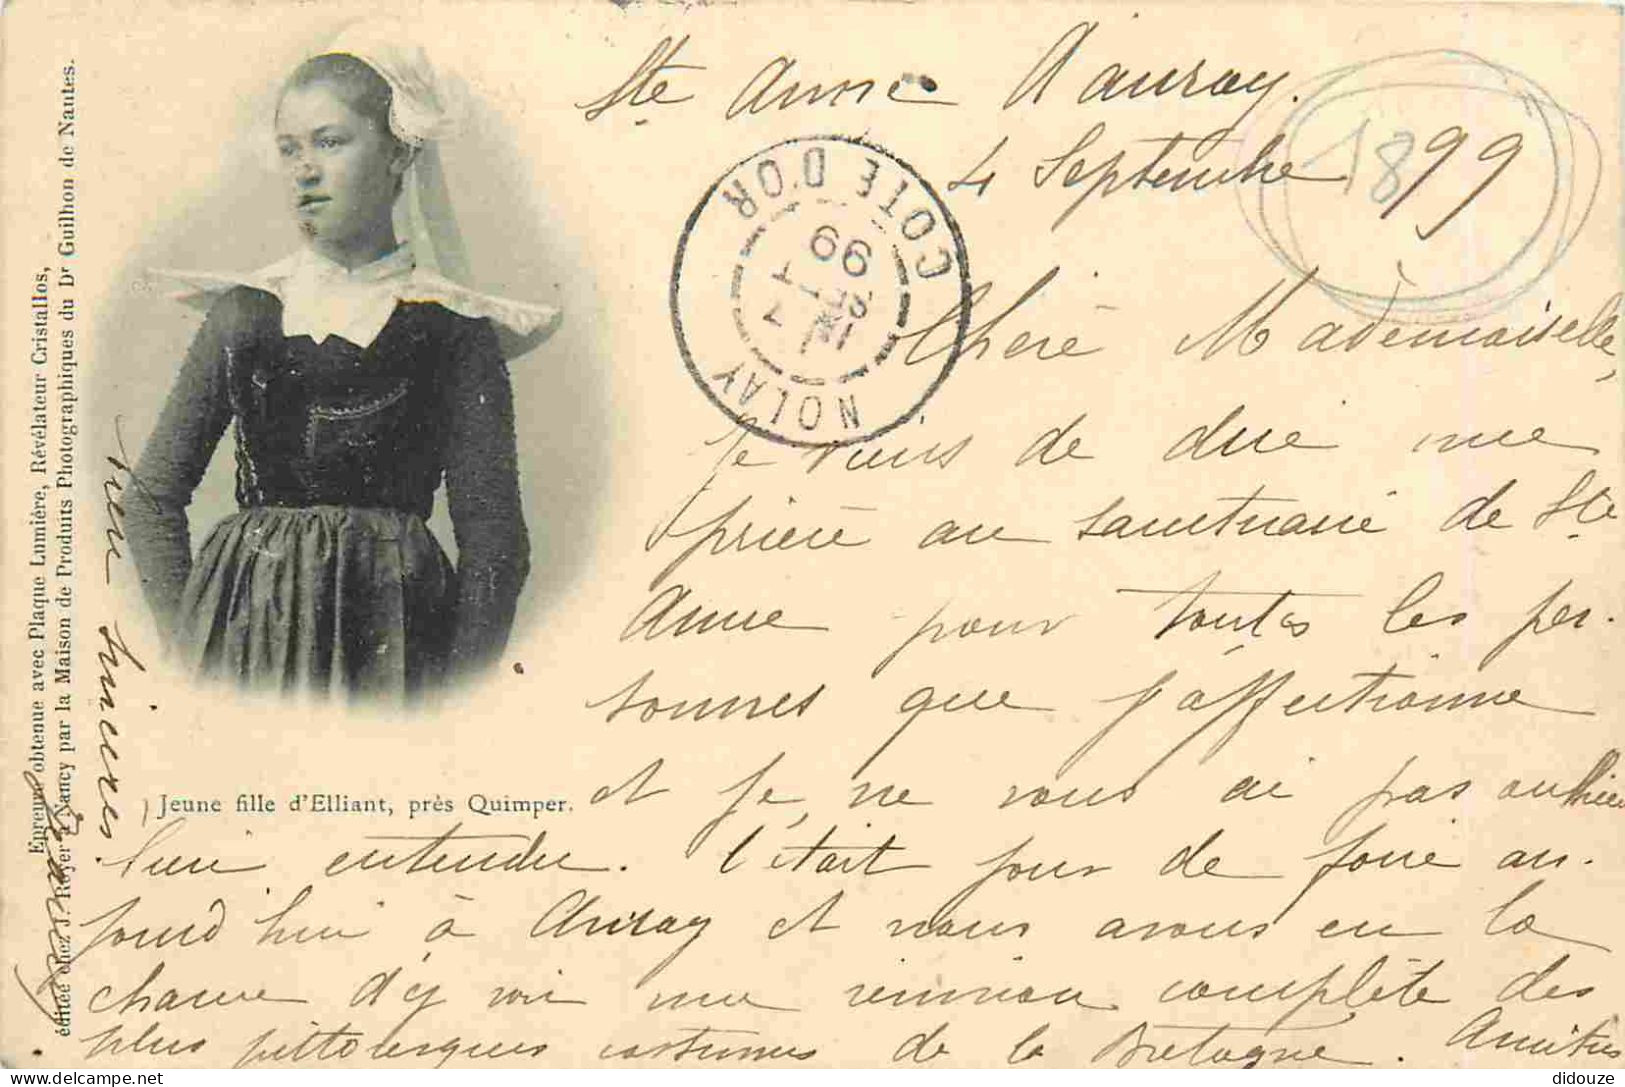 Ste Anne d'Auray.
4 Septembre 99
1899
COTE D'OR
7
SEPT
99
NOLAY
Chère Mademoiselle,
Je viens de dire une
prière au sanctuaire de Ste
Anne pour toutes les per-
sonnes que j'affectionne
et je ne vous ai pas oubliée
bien entendu. C'était jour de foire au-
jourd'hui à Auray et nous avons eu la
chance d'y voir une réunion complète des
plus pittoresques costumes de la Bretagne. Amitiés
bien sincères
Jeune fille d'Elliant, près Quimper.
Epreuve obtenue avec Plaque Lumière, Révélateur Cristallos,
éditée chez J. Royer à Nancy par la Maison de Produits Photographiques du Dr Guilhon de Nantes.
didouze